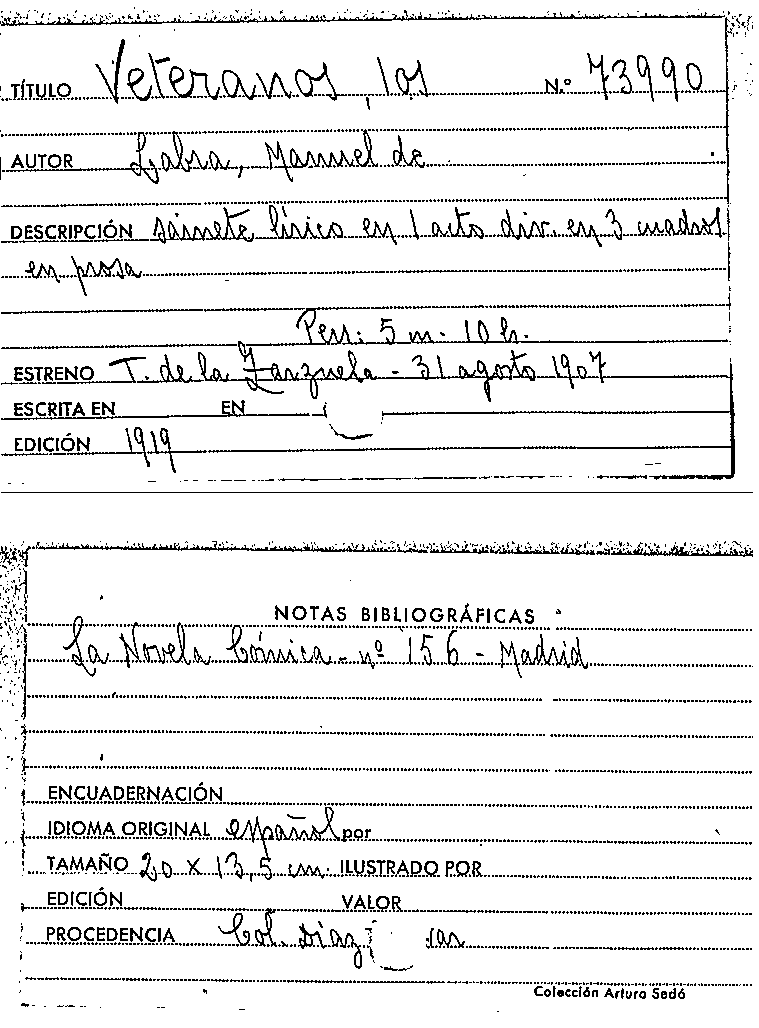 TÍTULO Veteranos, los N.º 73990
AUTOR Labra, Manuel de
DESCRIPCIÓN sainete lírico en 1 acto div. en 3 cuadros
en prosa
Pers: 5 m. 10 h.
ESTRENO T. de la Zarzuela - 31 agosto 1907
ESCRITA EN EN
EDICIÓN 1919
NOTAS BIBLIOGRÁFICAS
La Novela Cómica - nº 156 - Madrid
ENCUADERNACIÓN
IDIOMA ORIGINAL español por
TAMAÑO 20 x 13,5 cm. ILUSTRADO POR
EDICIÓN VALOR
PROCEDENCIA Col. Díaz
Colección Arturo Sedó